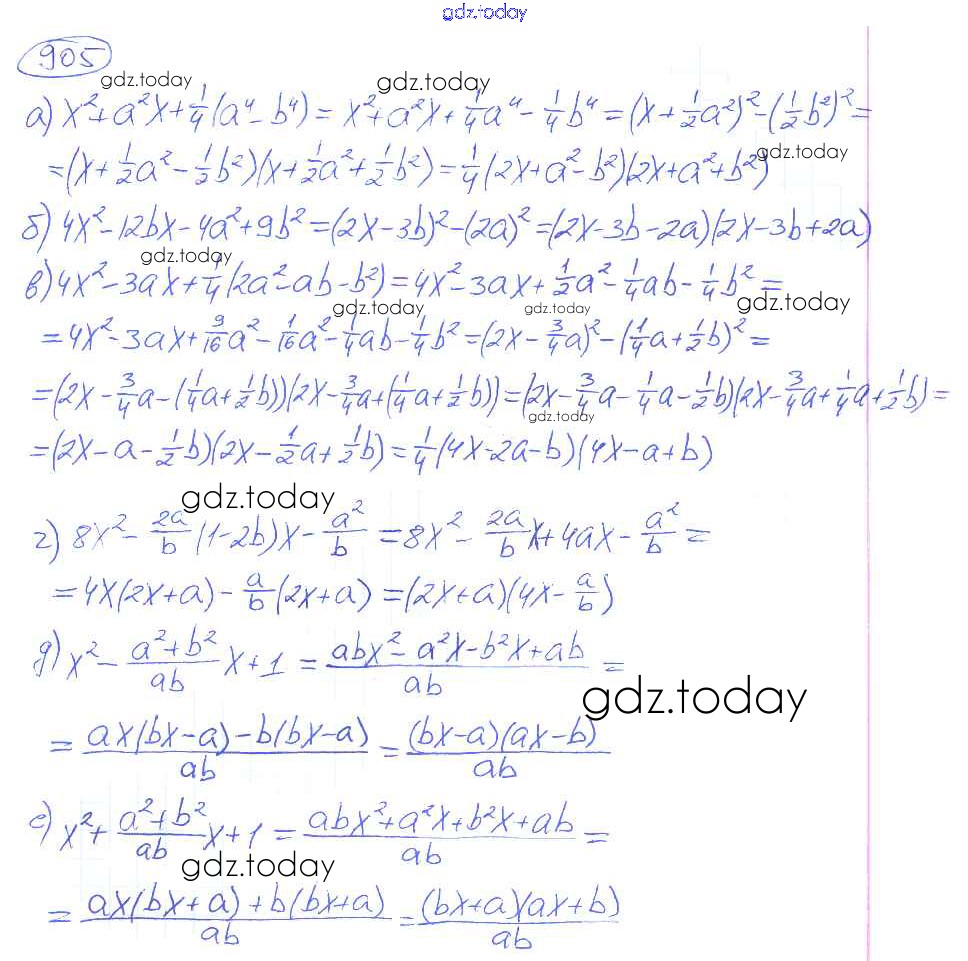 gdz.today
905
gdz.today gdz.today
а) x²+a²x+1/4(a⁴-b⁴) = x²+a²x+1/4a⁴-1/4b⁴=(x+1/2a²)²-(1/2b²)²=
gdz.today
=(x+1/2a²-1/2b²)(x+1/2a²+1/2b²)=1/4(2x+a²-b²)(2x+a²+b²)
б) 4x²-12bx-4a²+9b²=(2x-3b)²-(2a)²=(2x-3b-2a)(2x-3b+2a)
gdz.today
в) 4x²-3ax+1/4(2a²-ab-b²)=4x²-3ax+1/2a²-1/4ab-1/4b²=
gdz.today gdz.today
=4x²-3ax+9/16a²-1/16a²-1/4ab-1/4b²=(2x-3/4a)²-(1/4a+1/2b)²=
=(2x-3/4a-(1/4a+1/2b))(2x-3/4a+(1/4a+1/2b))=(2x-3/4a-1/4a-1/2b)(2x-3/4a+1/4a+1/2b)=
gdz.today
=(2x-a-1/2b)(2x-1/2a+1/2b)=1/4(4x-2a-b)(4x-a+b)
gdz.today
г) 8x²-2a/b(1-2b)x-a²/b=8x²-2a/b x+4ax-a²/b=
=4x(2x+a)-a/b(2x+a)=(2x+a)(4x-a/b)
д) x²-(a²+b²)/ab x+1=(abx²-a²x-b²x+ab)/ab=
gdz.today
=(ax(bx-a)-b(bx-a))/ab=(bx-a)(ax-b)/ab
е) x²+(a²+b²)/ab x+1=(abx²+a²x+b²x+ab)/ab=
gdz.today
=(ax(bx+a)+b(bx+a))/ab=(bx+a)(ax+b)/ab